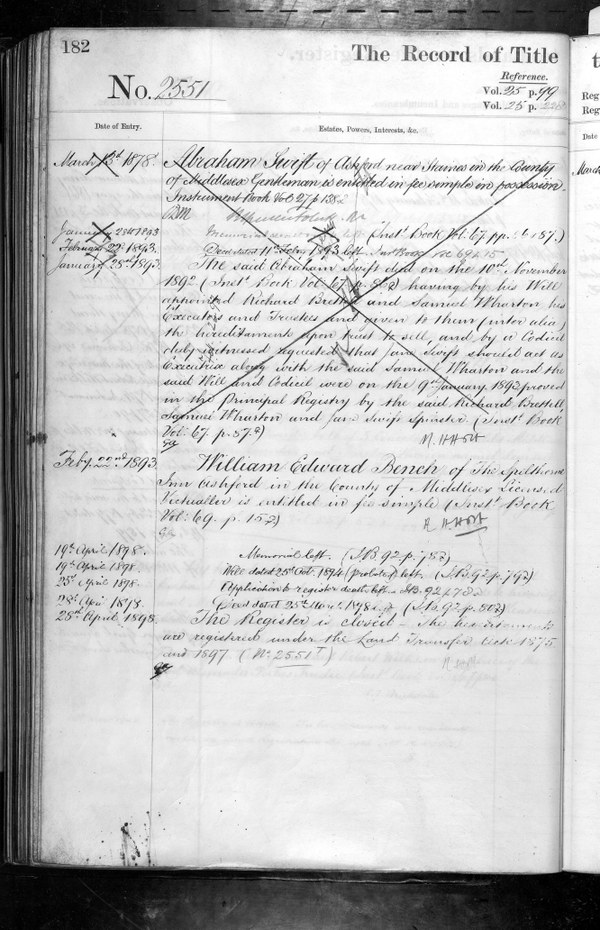 182
The Record of Title
No. 2551
Reference.
Vol. 25 p. 99
Vol. 25 p.
Date of Entry.
Estates, Powers, Interests, &c.
March 13th 1878.
Abraham Swift of Ashford near Staines in the County
of Middlesex Gentleman is entitled in fee simple in possession
Instrument Book Vol. 27 p.
January 1893
(Inst. Book Vol. 67. pp. 187.)
February 22nd 1893.
Deed dated 11th 1893 left. Inst Book
January 28th 1893
The said Abraham Swift died on the 10th November
1892 (Inst. Book Vol. 67 p. ) having by his Will
appointed Richard and Samuel Wharton his
Executors and Trustees and given to them (inter alia)
the hereditaments upon trust to sell, and by a Codicil
duly witnessed requested that Jane Swift should act as
Executrix along with the said Samuel Wharton and the
said Will and Codicil were on the 9th January 1892 proved
in the Principal Registry by the said Richard
Samuel Wharton and Jane Swift Spinster. (Inst. Book
Vol. 67. p. 57.)
Feby. 22nd 1893.
William Edward Bench of The Spelthorne
Inn Ashford in the County of Middlesex Licensed
Victualler is entitled in fee simple (Inst. Book
Vol. 69. p. 152)
19th April 1898.
Memorial left. (I.B. 92. p. 782)
19th April 1898
Will dated 25th Oct. 1894 (probate) left. (I.B. 92. p. 792)
25th April 1898.
Application to register death left.
28th April 1898.
Deed dated 25th 1898 (I.B. 92. p. )
28th April 1898.
The Register is closed - The hereditaments
are registered under the Land Transfer Acts 1875
and 1897 (No. 2551 T)